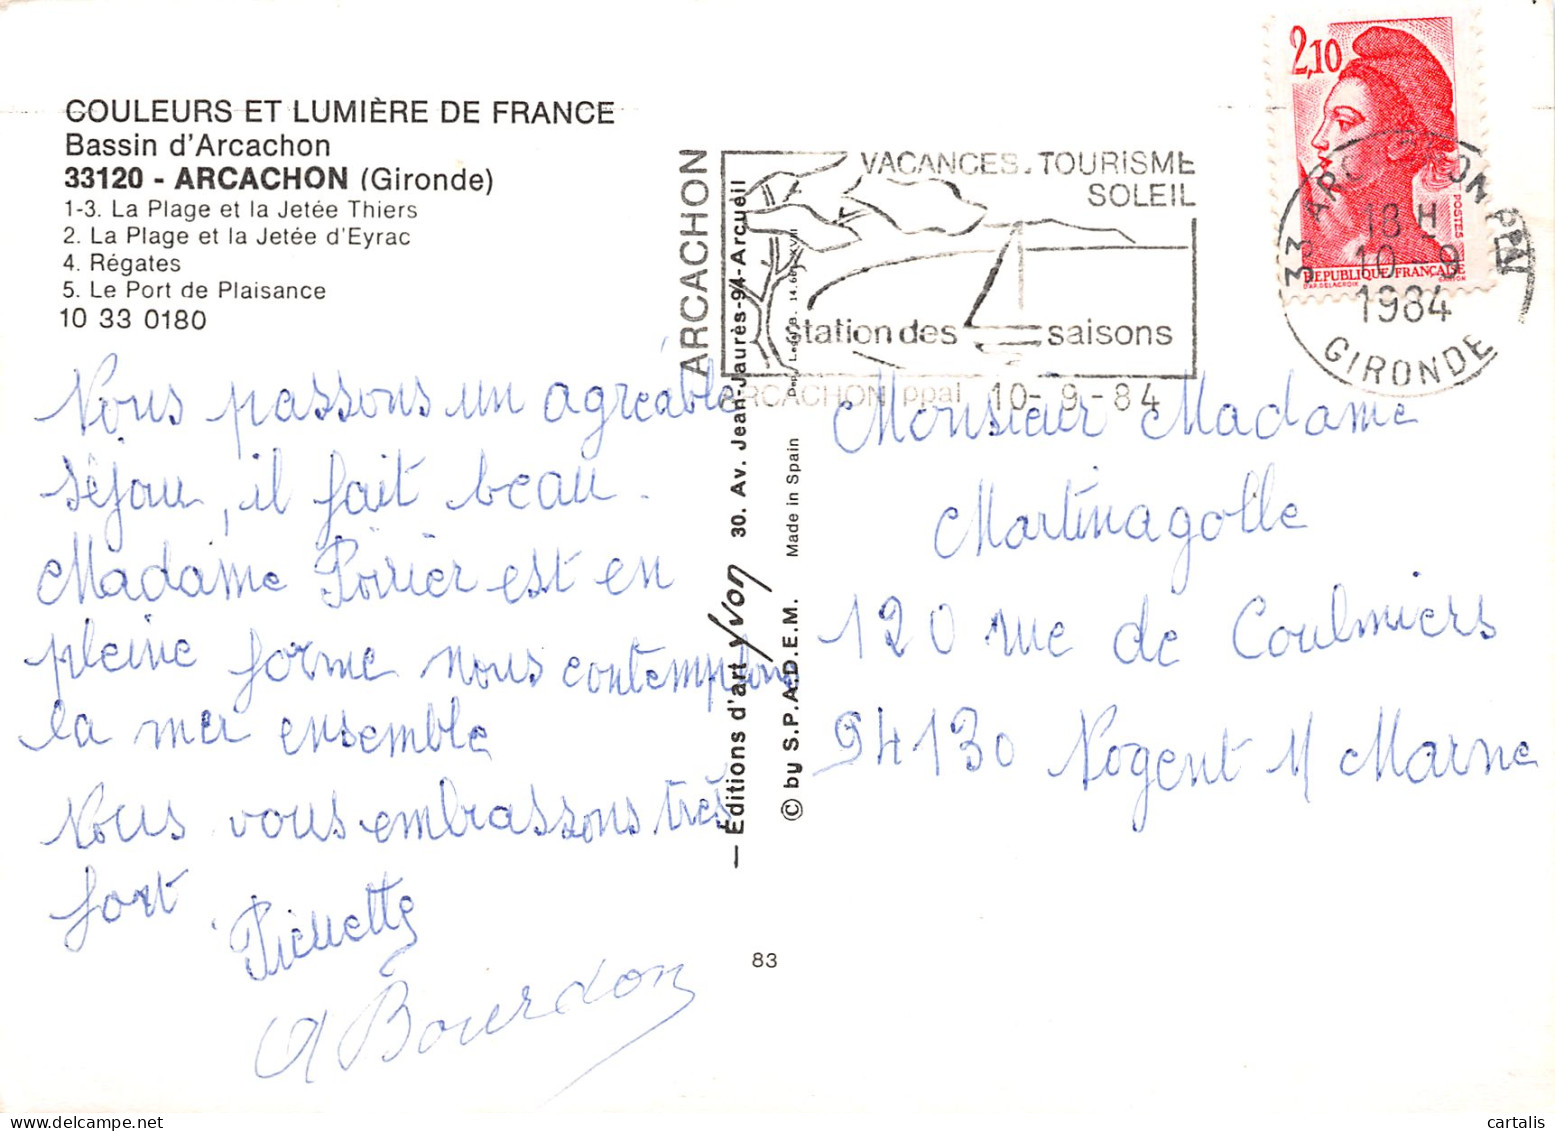 COULEURS ET LUMIÈRE DE FRANCE
Bassin d'Arcachon
33120 - ARCACHON (Gironde)
1-3. La Plage et la Jetée Thiers
2. La Plage et la Jetée d'Eyrac
4. Régates
5. Le Port de Plaisance
10 33 0180
Nous passons un agréable
séjour, il fait beau.
Madame Poirier est en
pleine forme nous contemplons
la mer ensemble
Nous vous embrassons très
fort
Pierrette
A Bourdon
ARCACHON
VACANCES. TOURISME
SOLEIL
station des saisons
ARCACHON ppal 10-9-84
— Éditions d'art Yvon 30. Av. Jean-Jaurès-94-Arcueil
© by S.P.A.D.E.M. Made in Spain
83
2,10
POSTES
REPUBLIQUE FRANÇAISE
D'AP. DELACROIX GANDON
33 ARCACHON PPAL
18 H
10-9
1984
GIRONDE
Monsieur Madame
Martinagolle
120 rue de Coulmiers
94130 Nogent s/ Marne